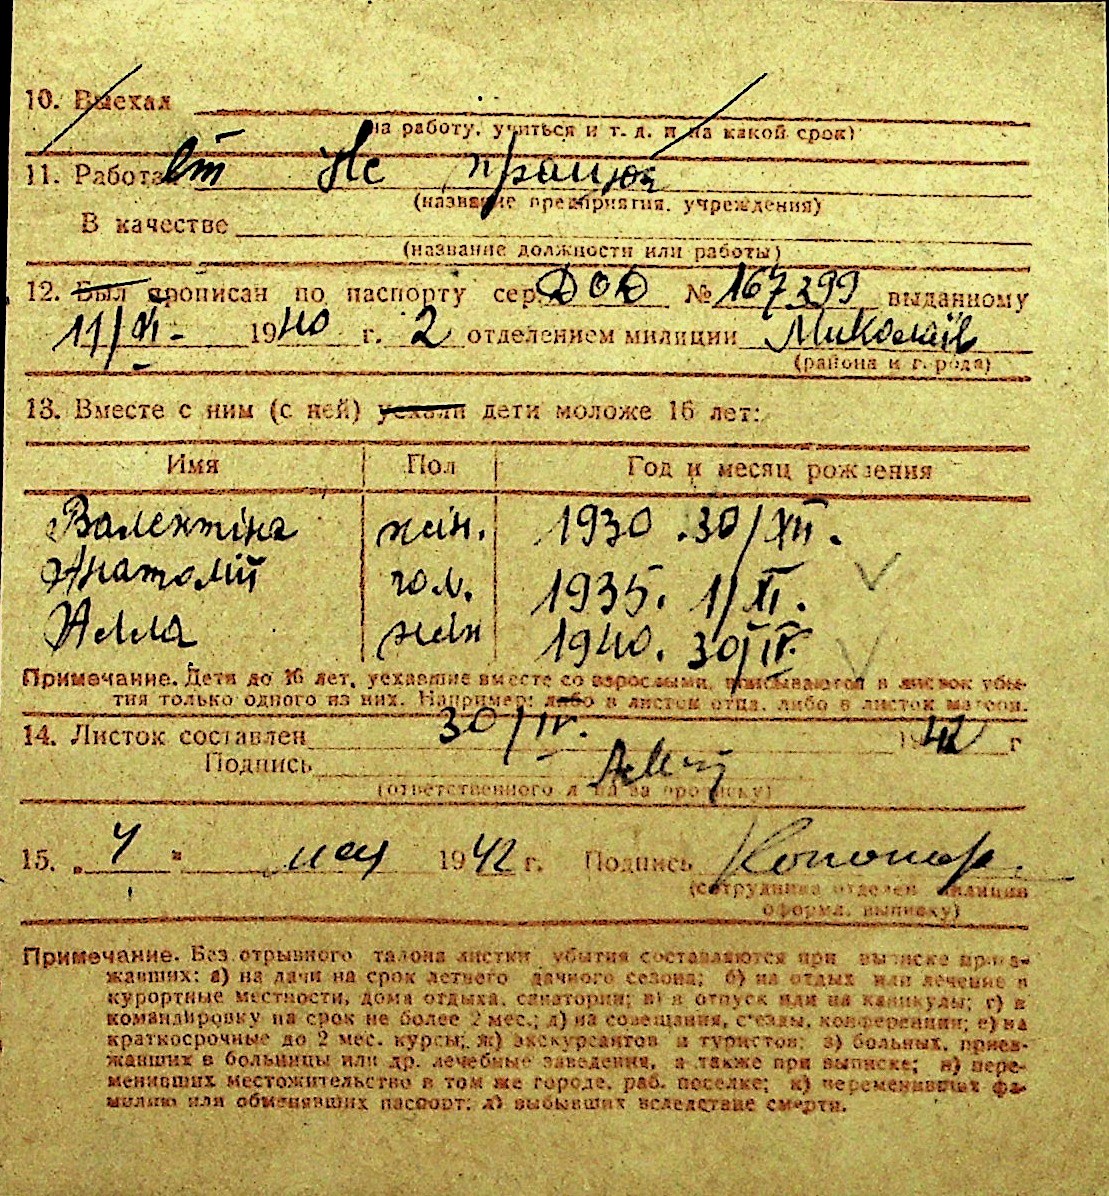 10. Выехал
(на работу, учиться и т. д. и на какой срок)
11. Работает Не працює
(название предприятия, учреждения)
В качестве
(название должности или работы)
12. Был прописан по паспорту сер. ДОД № 167299 выданному
11/XI - 1940 г. 2 отделением милиции Миколаїв
(района и города)
13. Вместе с ним (с ней) уехали дети моложе 16 лет:
Имя Пол Год и месяц рождения
Валентіна жін. 1930 . 30/XII.
Анатолій чол. 1935. 1/XI.
Алла жін 1940. 30/IV.
Примечание. Дети до 16 лет, уехавшие вместе со взрослыми, вписываются в листок убы-
тия только одного из них. Например: либо в листок отца, либо в листок матери.
14. Листок составлен 30/IV. 1942 г
Подпись
(ответственного лица за прописку)
15. „ 4 " мая 1942 г. Подпись
(сотрудника отделен. милиции
оформл. выписку)
Примечание. Без отрывного талона листки убытия составляются при выписке приез-
жавших: а) на дачи на срок летнего дачного сезона; б) на отдых или лечение в
курортные местности, дома отдыха, санатории; в) в отпуск или на каникулы; г) в
командировку на срок не более 2 мес.; д) на совещания, съезды, конференции; е) на
краткосрочные до 2 мес. курсы; ж) экскурсантов и туристов; з) больных, приез-
жавших в больницы или др. лечебные заведения, а также при выписке; и) пере-
менивших местожительство в том же городе, раб. поселке; к) переменивших фа-
милию или обменявших паспорт; л) выбывших вследствие смерти.